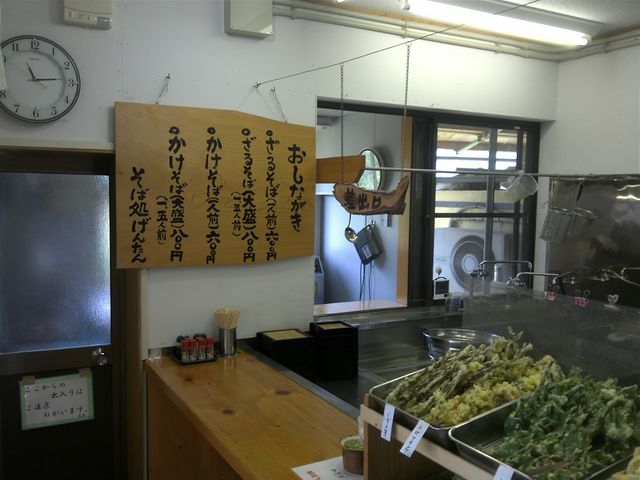 おしながき
ざるそば(一人前)六〇〇円
ざるそば(大盛)八〇〇円
(一.五人前)
かけそば(一人前)六〇〇円
かけそば(大盛)八〇〇円
(一.五人前)
そば処げんたん
差出口
ここからの
出入りは
ご遠慮
ねがいます。